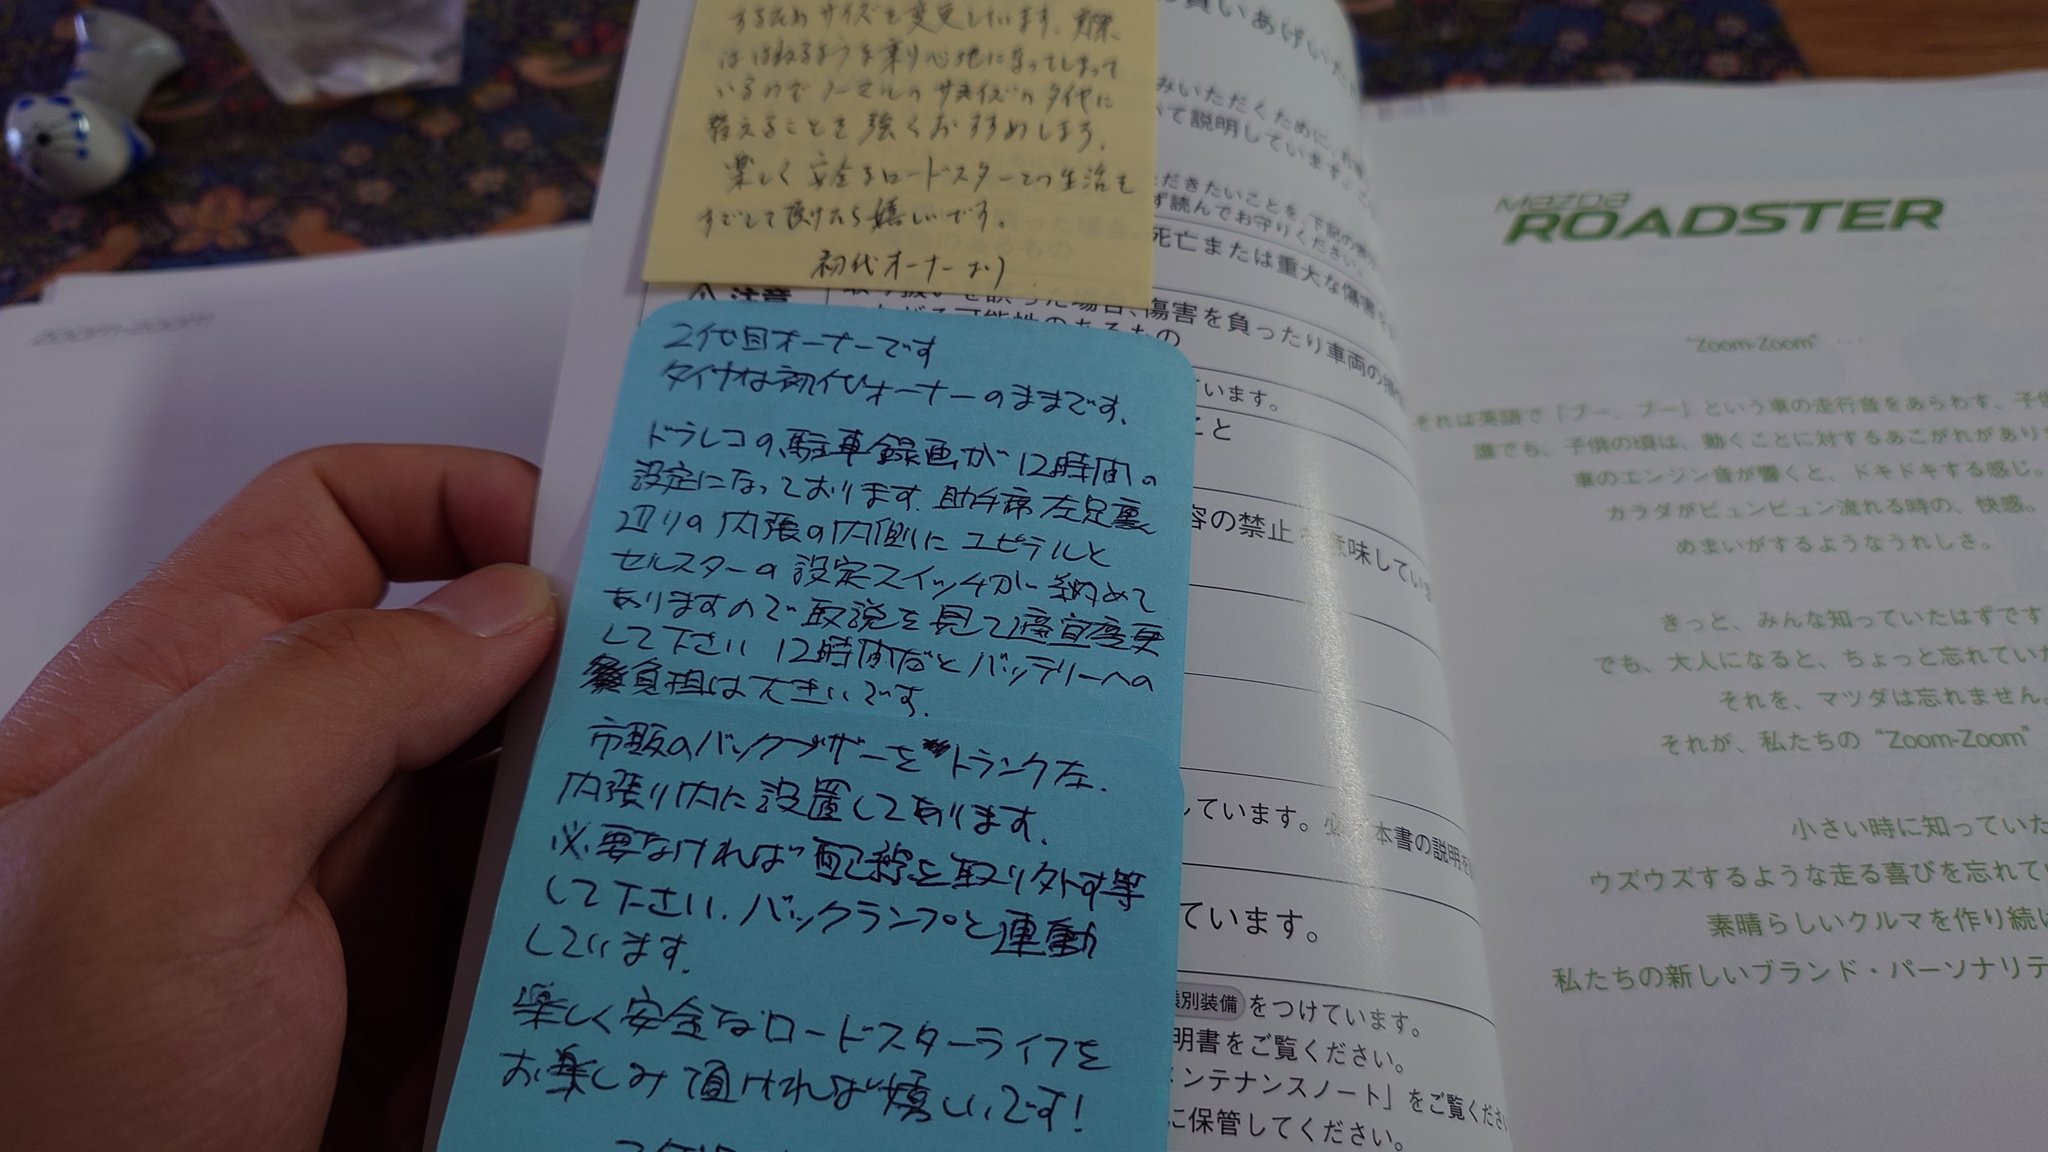 するためサイズを変更しています。実際
ははねるような乗り心地になってしまって
いるのでノーマルのサイズのタイヤに
替えることを強くおすすめします。
楽しく安全なロードスターとの生活を
すごして頂けたら嬉しいです。
初代オーナーより
2代目オーナーです
タイヤは初代オーナーのままです.
ドラレコの駐車録画が12時間の
設定になっております.助手席左足裏
辺りの内張の内側にユピテルと
セルスターの設定スイッチが納めて
ありますので取説を見て適宜変更
して下さい 12時間だとバッテリーへの
負担は大きいです.
市販のバックブザーをトランク左.
内張り内に設置してあります.
必要なければ配線を取り外す等
して下さい.バックランプと連動
しています.
楽しく安全なロードスターライフを
お楽しみ頂ければ嬉しいです!
買いあげいた
みいただくために、お
いて説明しています。
ただきたいことを、下記の
ず読んでお守りください。
死亡または重大な傷害
注意
取り扱いを誤った場合、傷害を負ったり車両の
可能性のあるもの
ています。
こと
容の禁止を意味してい
しています。必 本書の説明
ています。
別装備 をつけています。
明書をご覧ください。
メンテナンスノート」をご覧くださ
に保管してください。
zoom-zoom
Mazda
ROADSTER
“Zoom-Zoom” ・・・
それは英語で「ブー、ブー」という車の走行音をあらわす、子供
誰でも、子供の頃は、動くことに対するあこがれがあり
車のエンジン音が響くと、ドキドキする感じ。
カラダがビュンビュン流れる時の、快感。
めまいがするようなうれしさ。
きっと、みんな知っていたはずです
でも、大人になると、ちょっと忘れていた
それを、マツダは忘れません。
それが、私たちの “Zoom-Zoom”
小さい時に知っていた
ウズウズするような走る喜びを忘れてい
素晴らしいクルマを作り続け
私たちの新しいブランド・パーソナリテ